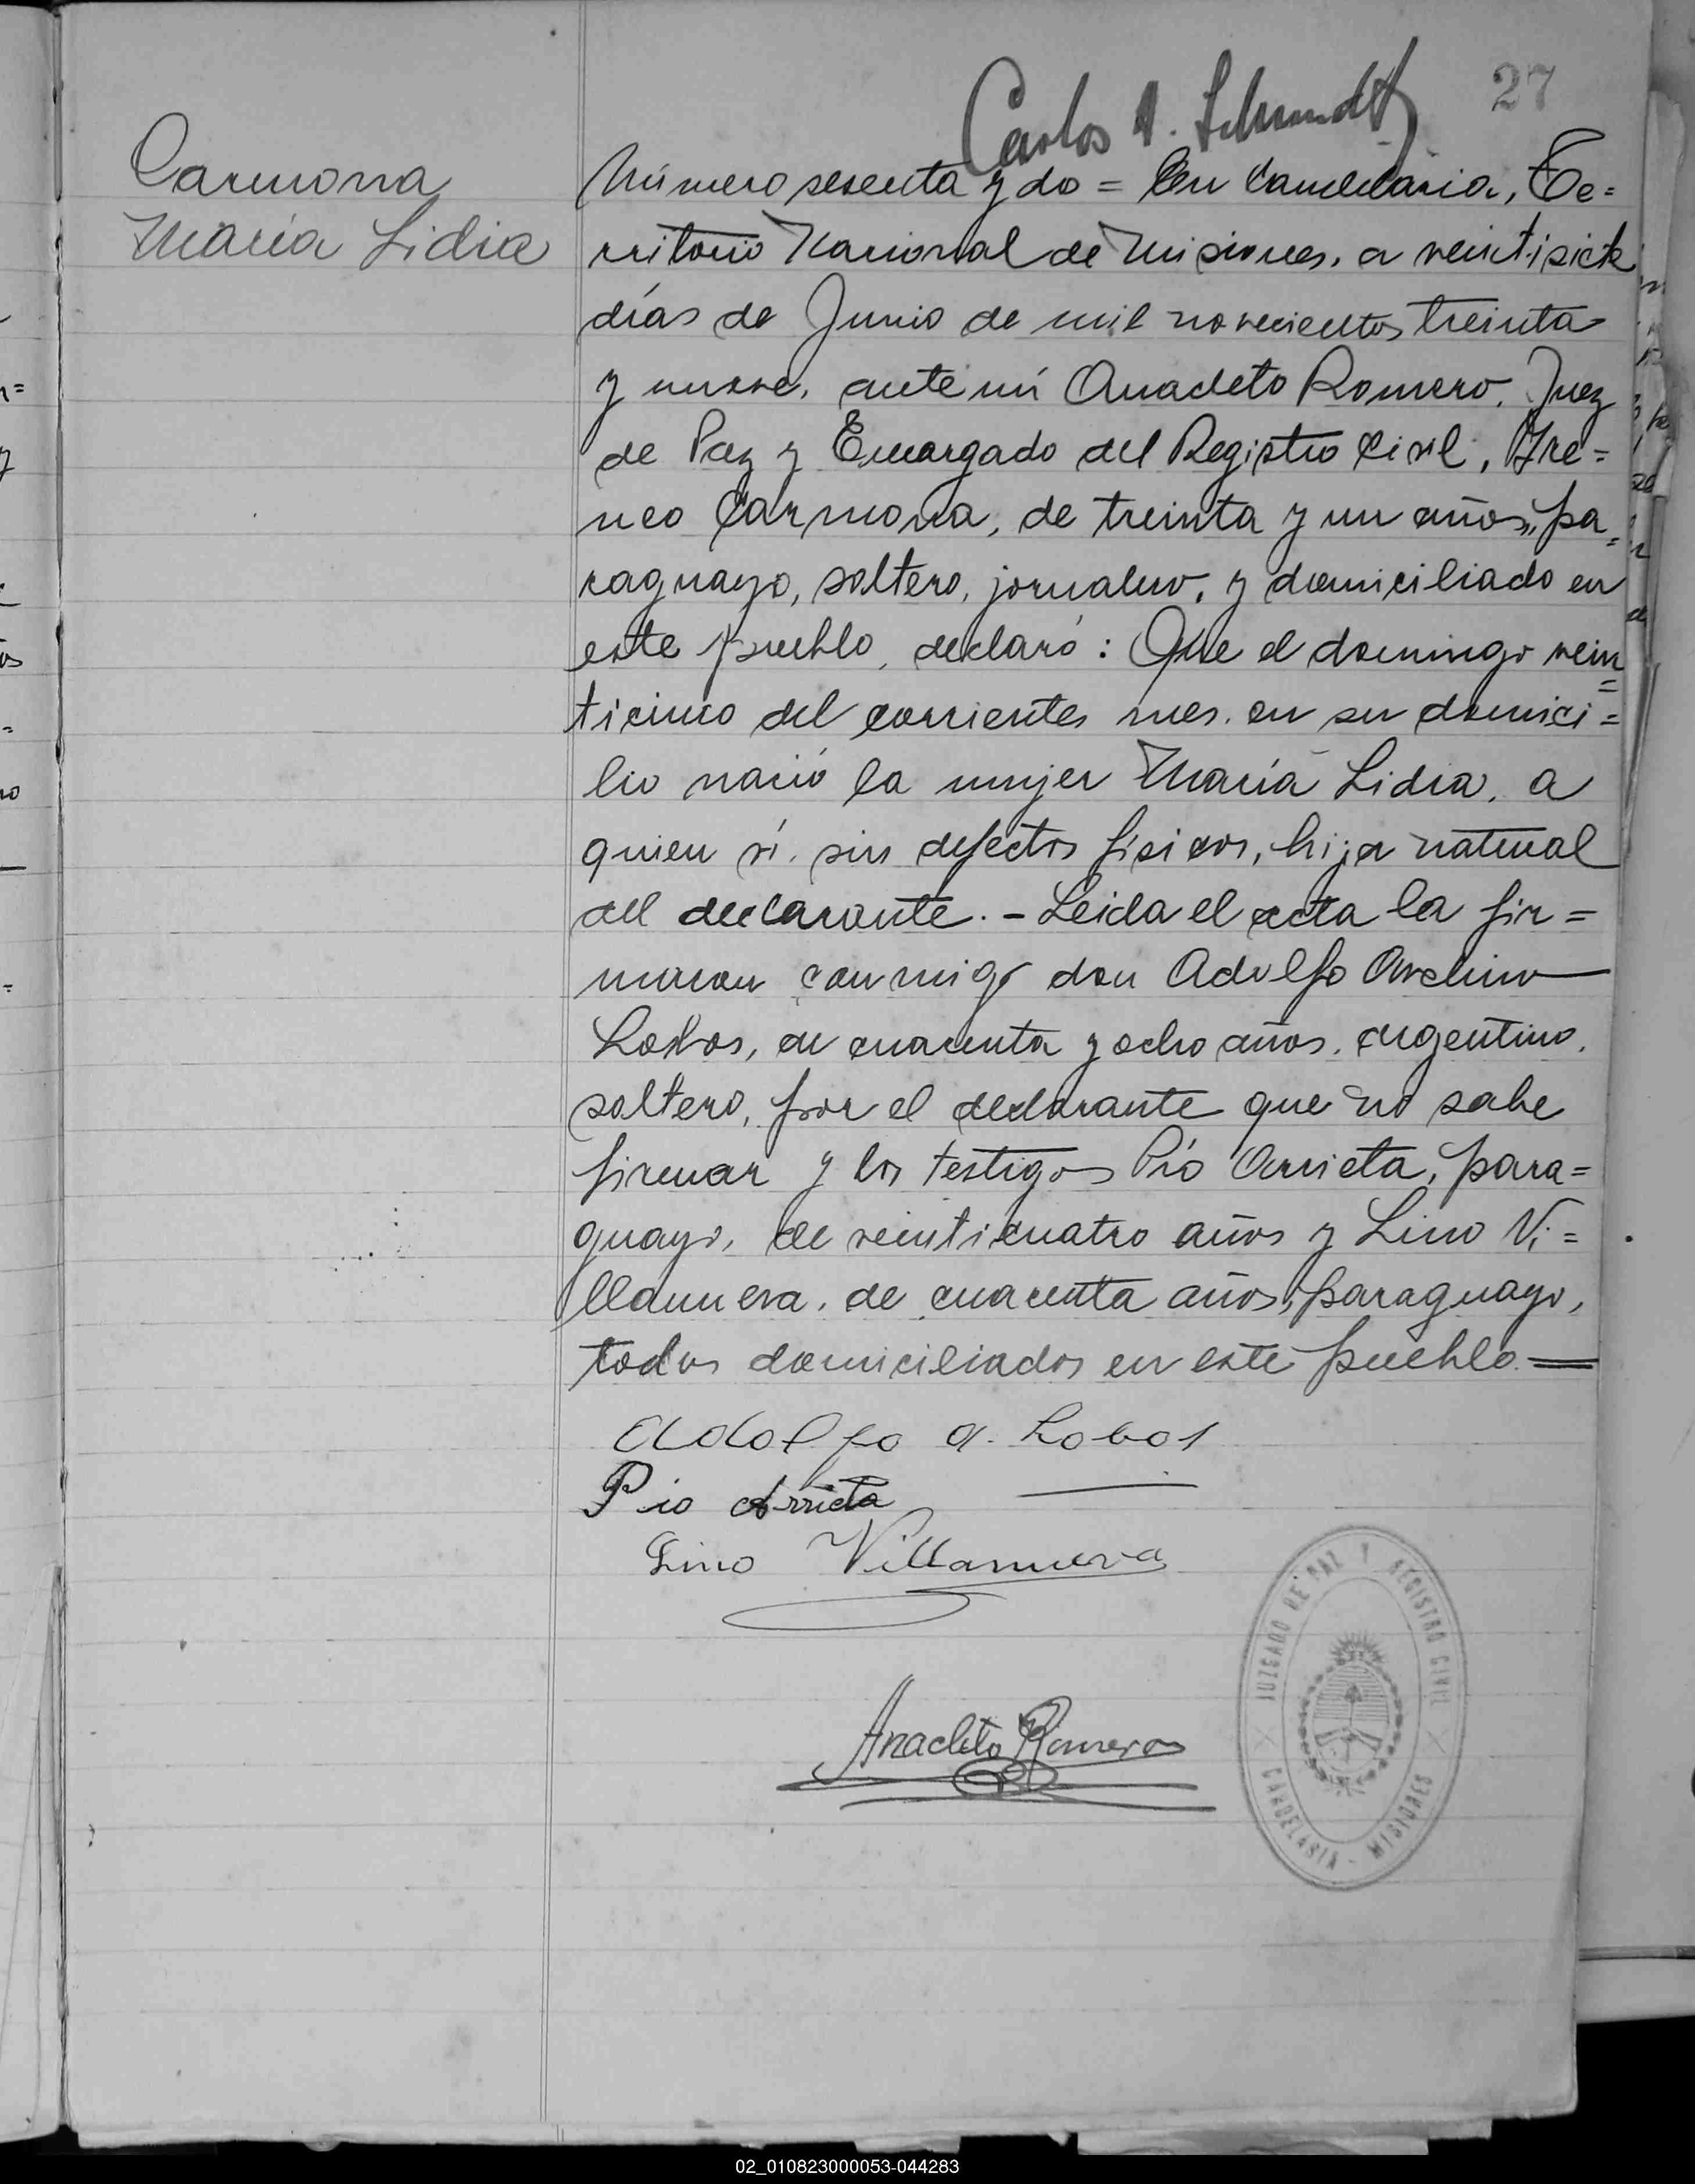 Carlos A. Schmidt
27
Carmona
María Lidia
Número sesenta y do = En Candelaria, Te=
rritorio Nacional de Misiones, a veintisiete
días de Junio de mil novecientos treinta
y nueve, ante mí Anacleto Romero, Juez
de Paz y Encargado del Registro Civil, Ire=
neo Carmona, de treinta y un años, pa=
raguayo, soltero, jornalero, y domiciliado en
este pueblo, declaró: Que el domingo vein=
ticinco del corrientes mes, en su domici=
lio nació la mujer María Lidia, a
quien ví, sin defectos físicos, hija natural
del declarante. - Leida el acta la fir=
maron conmigo don Adolfo Avelino
Lobos, de cuarenta y ocho años, argentino,
soltero, por el declarante que no sabe
firmar y los testigos Pío Arrieta, para=
guayo, de veinticuatro años y Lino Vi=
llanueva, de cuarenta años, paraguayo,
todos domiciliados en este pueblo.=
Adolfo A. Lobos
Pio Arrieta
Lino Villanueva
Anacleto Romero
JUZGADO DE PAZ Y REGISTRO CIVIL
CANDELARIA - MISIONES
02_010823000053-044283